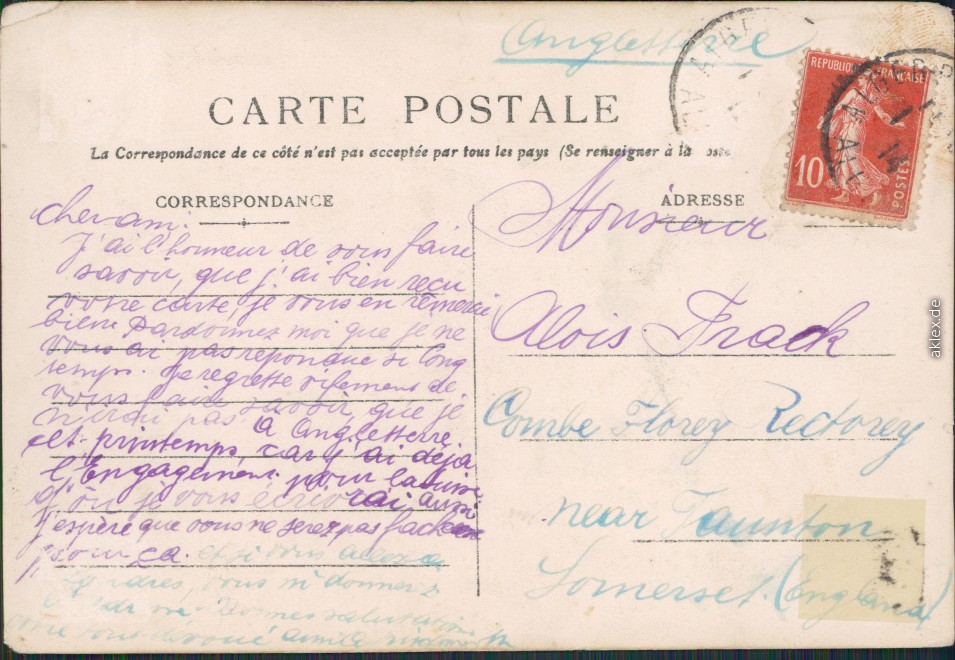 Angleterre
CARTE POSTALE
La Correspondance de ce côté n'est pas acceptée par tous les pays (Se renseigner à la Poste
CORRESPONDANCE
ADRESSE
REPUBLIQUE FRANÇAISE
10
POSTES
Cher ami.
J'ai l'honneur de vous faire
savoir, que j'ai bien reçu
votre carte, je vous en remercie
bien. Pardonnez moi que je ne
vous ai pas repondue si long
temps. Je regrette vifement de
vous faire savoir, que je
n'irai pas à Angleterre
cet printemps car j'ai déjà
l'Engagement pour la
d'où je vous écrirai aussi
J'espère que vous ne serez pas faché
pour ça. et si vous allez à
vous m donnerz
votre tous dévoué
Monsieur
Alois Frack
Combe Florey Rectorey
near Taunton
Somerset. (England)
aklex.de